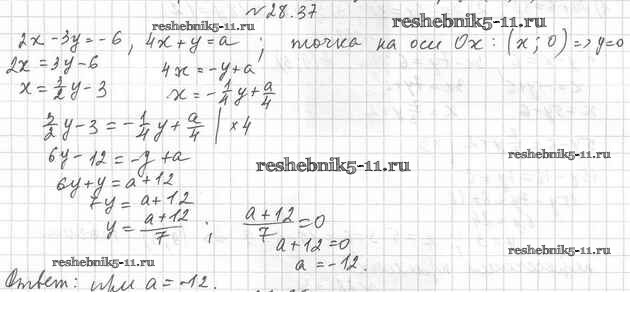 №28.37
reshebnik5-11.ru reshebnik5-11.ru
2x-3y=-6, 4x+y=a; точка на оси Ox: (x;0) => y=0
2x=3y-6 4x=-y+a
x=3/2 y-3 x=-1/4 y+a/4
3/2 y-3=-1/4 y+a/4 | ×4
6y-12=-y+a reshebnik5-11.ru reshebnik5-11.ru
6y+y=a+12
7y=a+12
y=(a+12)/7; (a+12)/7=0
a+12=0
reshebnik5-11.ru a=-12. reshebnik5-11.ru
Ответ: при a=-12.